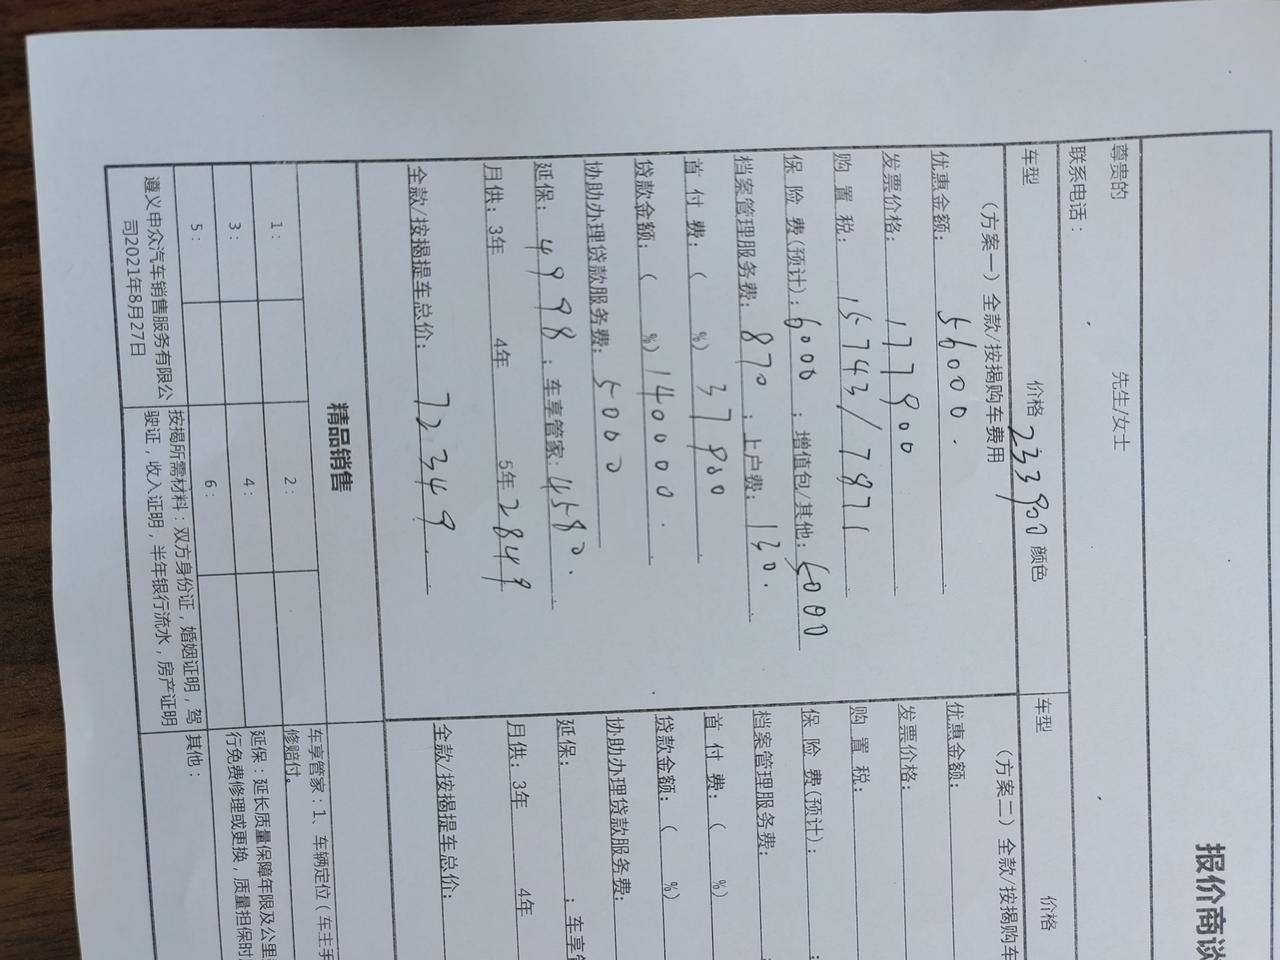 报价商谈
尊贵的 先生/女士
联系电话：
车型 价格 233900 颜色
(方案一) 全款/按揭购车费用
优惠金额： 56000.
发票价格： 177900
购 置 税： 15743/7871
保 险 费(预计)：6000 ；增值包/其他：5000
档案管理服务费：870 ；上户费：130.
首 付 费：( %) 37900
贷款金额：( %) 140000.
协助办理贷款服务费：5000
延保：4998 ；车享管家：4580.
月供：3年 4年 5年 2849
全款/按揭提车总价： 72349.
车型 价格
(方案二) 全款/按揭购车
优惠金额：
发票价格：
购 置 税：
保 险 费(预计)：
档案管理服务费：
首 付 费：( %)
贷款金额：( %)
协助办理贷款服务费：
延保： ；车享
月供：3年 4年
全款/按揭提车总价：
精品销售
1： 2：
3： 4：
5： 6：
车享管家：1、车辆定位（车主手
修赔付。
延保：延长质量保障年限及公里
行免费修理或更换，质量担保时
遵义申众汽车销售服务有限公
司2021年8月27日
按揭所需材料：双方身份证，婚姻证明，驾
驶证，收入证明，半年银行流水，房产证明
其他：